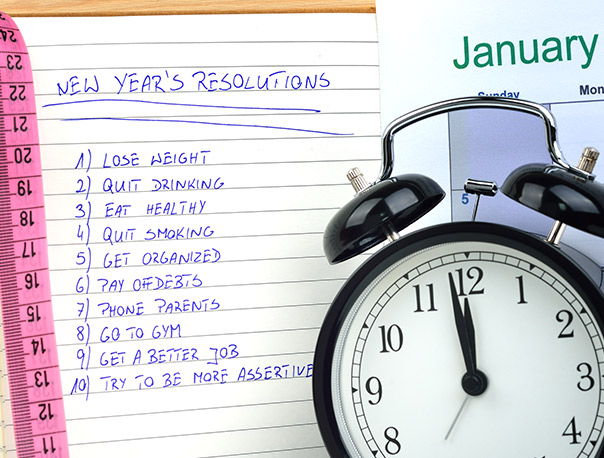 NEW YEAR'S RESOLUTIONS
1) LOSE WEIGHT
2) QUIT DRINKING
3) EAT HEALTHY
4) QUIT SMOKING
5) GET ORGANIZED
6) PAY OFDEBTS
7) PHONE PARENTS
8) GO TO GYM
9) GET A BETTER JOB
10) TRY TO BE MORE ASSERTIVE
January
Sunday Mon
5
11 12 1
10 2
9 3
8 4
24
23
22
21
20
19
18
17
16
15
14
13
12
11